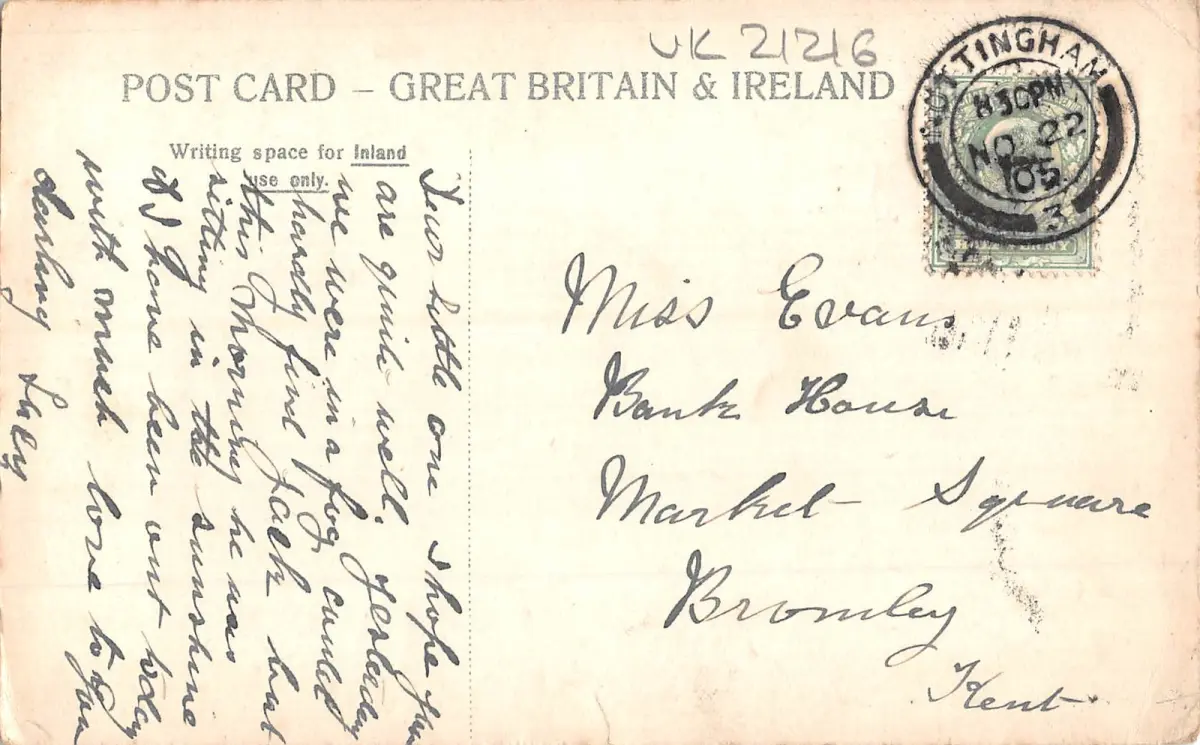 UK 21216
POST CARD – GREAT BRITAIN & IRELAND
Writing space for Inland
use only.
NOTTINGHAM
8 30PM
NO 22
05
3
HALFPENNY
Dear little one I hope you
are quite well. Yesterday
we were in a fog could
hardly find Jack but
this morning he was
sitting in the sunshine
& I have been out today
with much love to you
darling
Miss Evans
Bank House
Market Square
Bromley
Kent